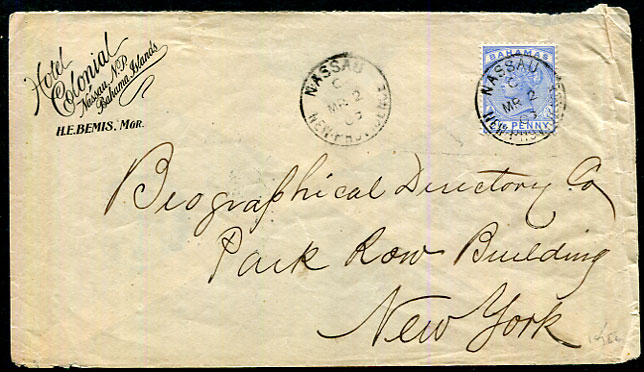 Hotel
Colonial
Nassau, N.P.
Bahama Islands
H.E. BEMIS, MGR.
NASSAU
C
MR 2
NEW PROVIDENCE
BAHAMAS
NASSAU
C
MR 2
NEW PROVIDENCE
PENNY
Biographical Directory Co
Park Row Building
New York